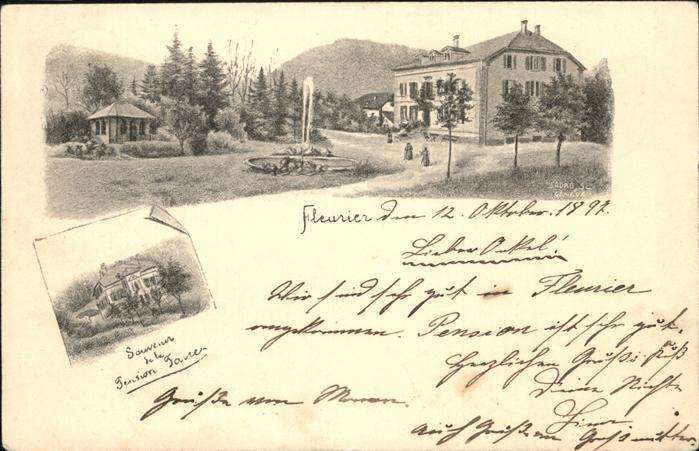 Fleurier den 12. Oktober. 1897.
Lieber Onkel!
Wir sind sehr gut in Fleurier
angekommen. Pension ist sehr gut.
Herzlichen Gruß
deine Nichte
Grüße von
auch Grüße an Großmutter.
Souvenir
de la
Pension